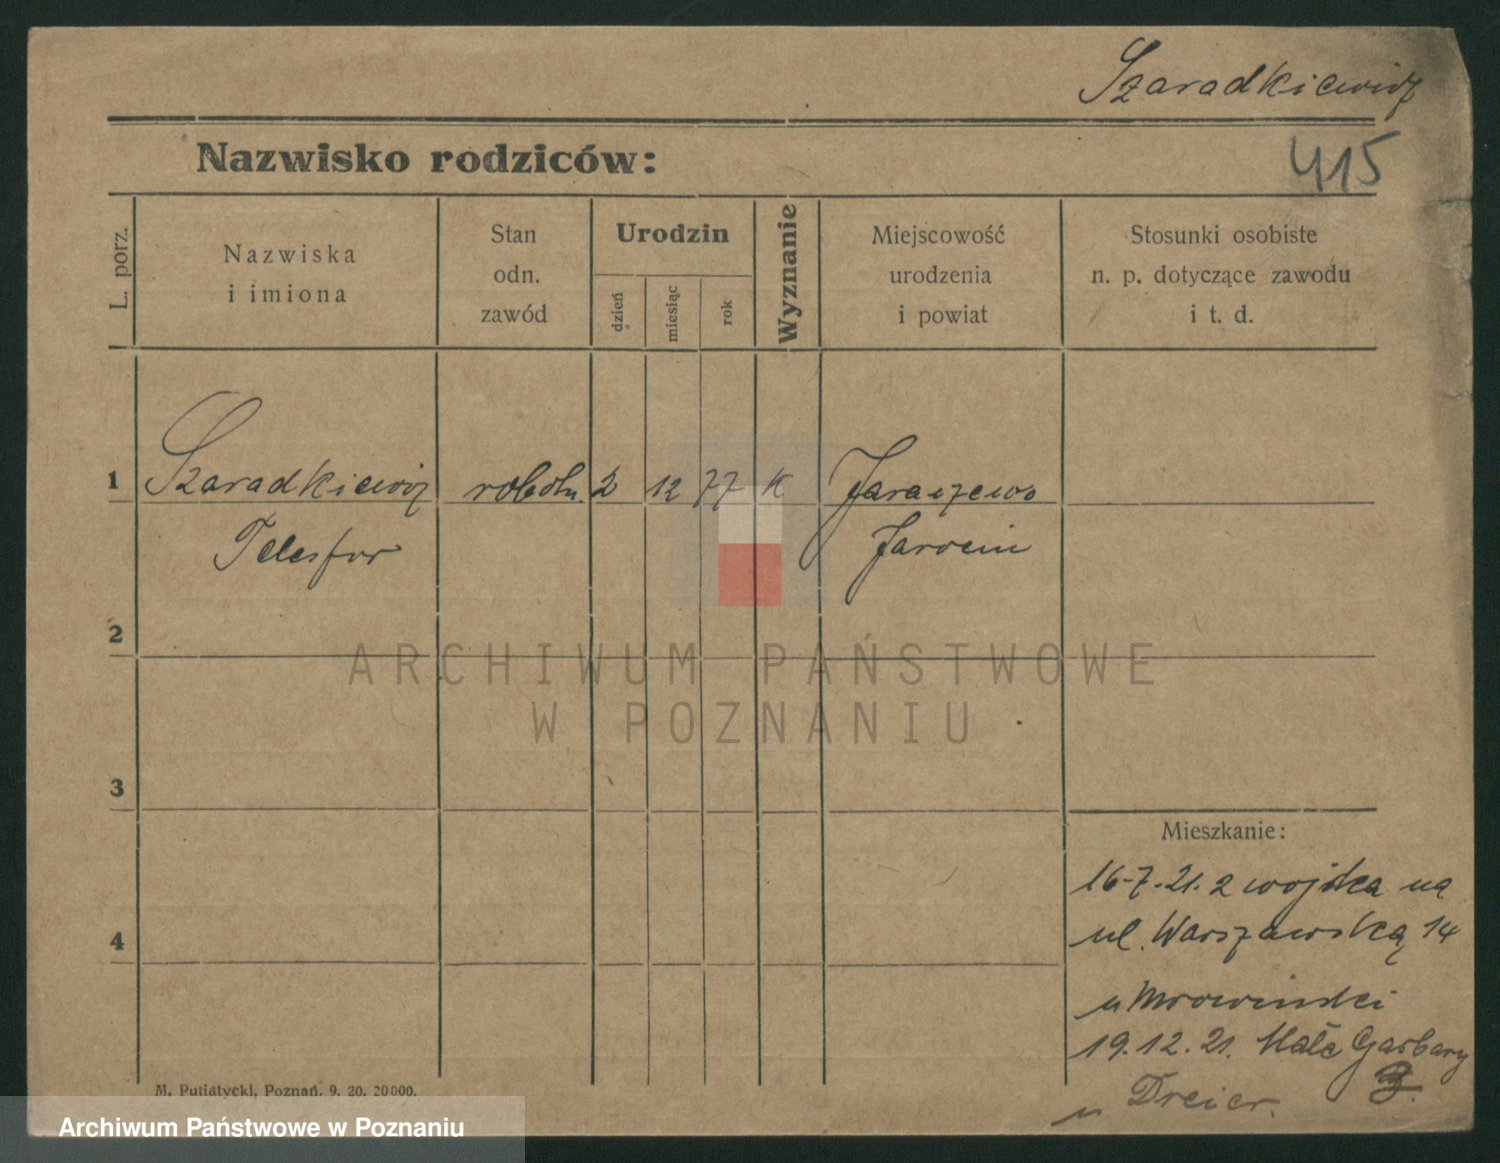 Szaradkiewicz
Nazwisko rodziców:
415
L. porz.
Nazwiska
i imiona
Stan
odn.
zawód
Urodzin
dzień
miesiąc
rok
Wyznanie
Miejscowość
urodzenia
i powiat
Stosunki osobiste
n. p. dotyczące zawodu
i t. d.
1
Szaradkiewicz robotn. 2 12 77 K Jaraczewo
Telesfor Jarocin
2
ARCHIWUM PAŃSTWOWE
W POZNANIU
3
Mieszkanie:
16-7.21. z wojska na
4
ul. Warszawską 14
u Mrowinski
19.12.21. Małe Garbary
u Dreier.
M. Putiatycki, Poznań. 9. 20. 20000.
Archiwum Państwowe w Poznaniu